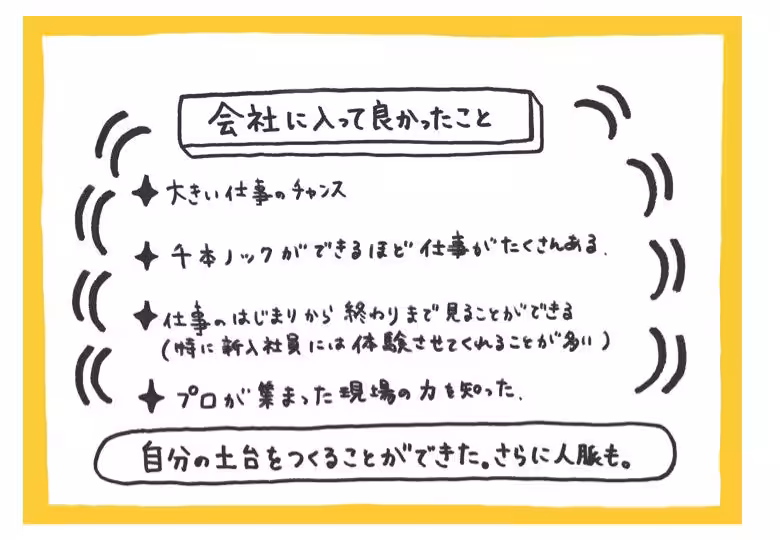 会社に入って良かったこと
大きい仕事のチャンス
千本ノックができるほど仕事がたくさんある.
仕事のはじまりから終わりまで見ることができる
(特に新入社員には体験させてくれることが多い)
プロが集まった現場の力を知った.
自分の土台をつくることができた。さらに人脈も。